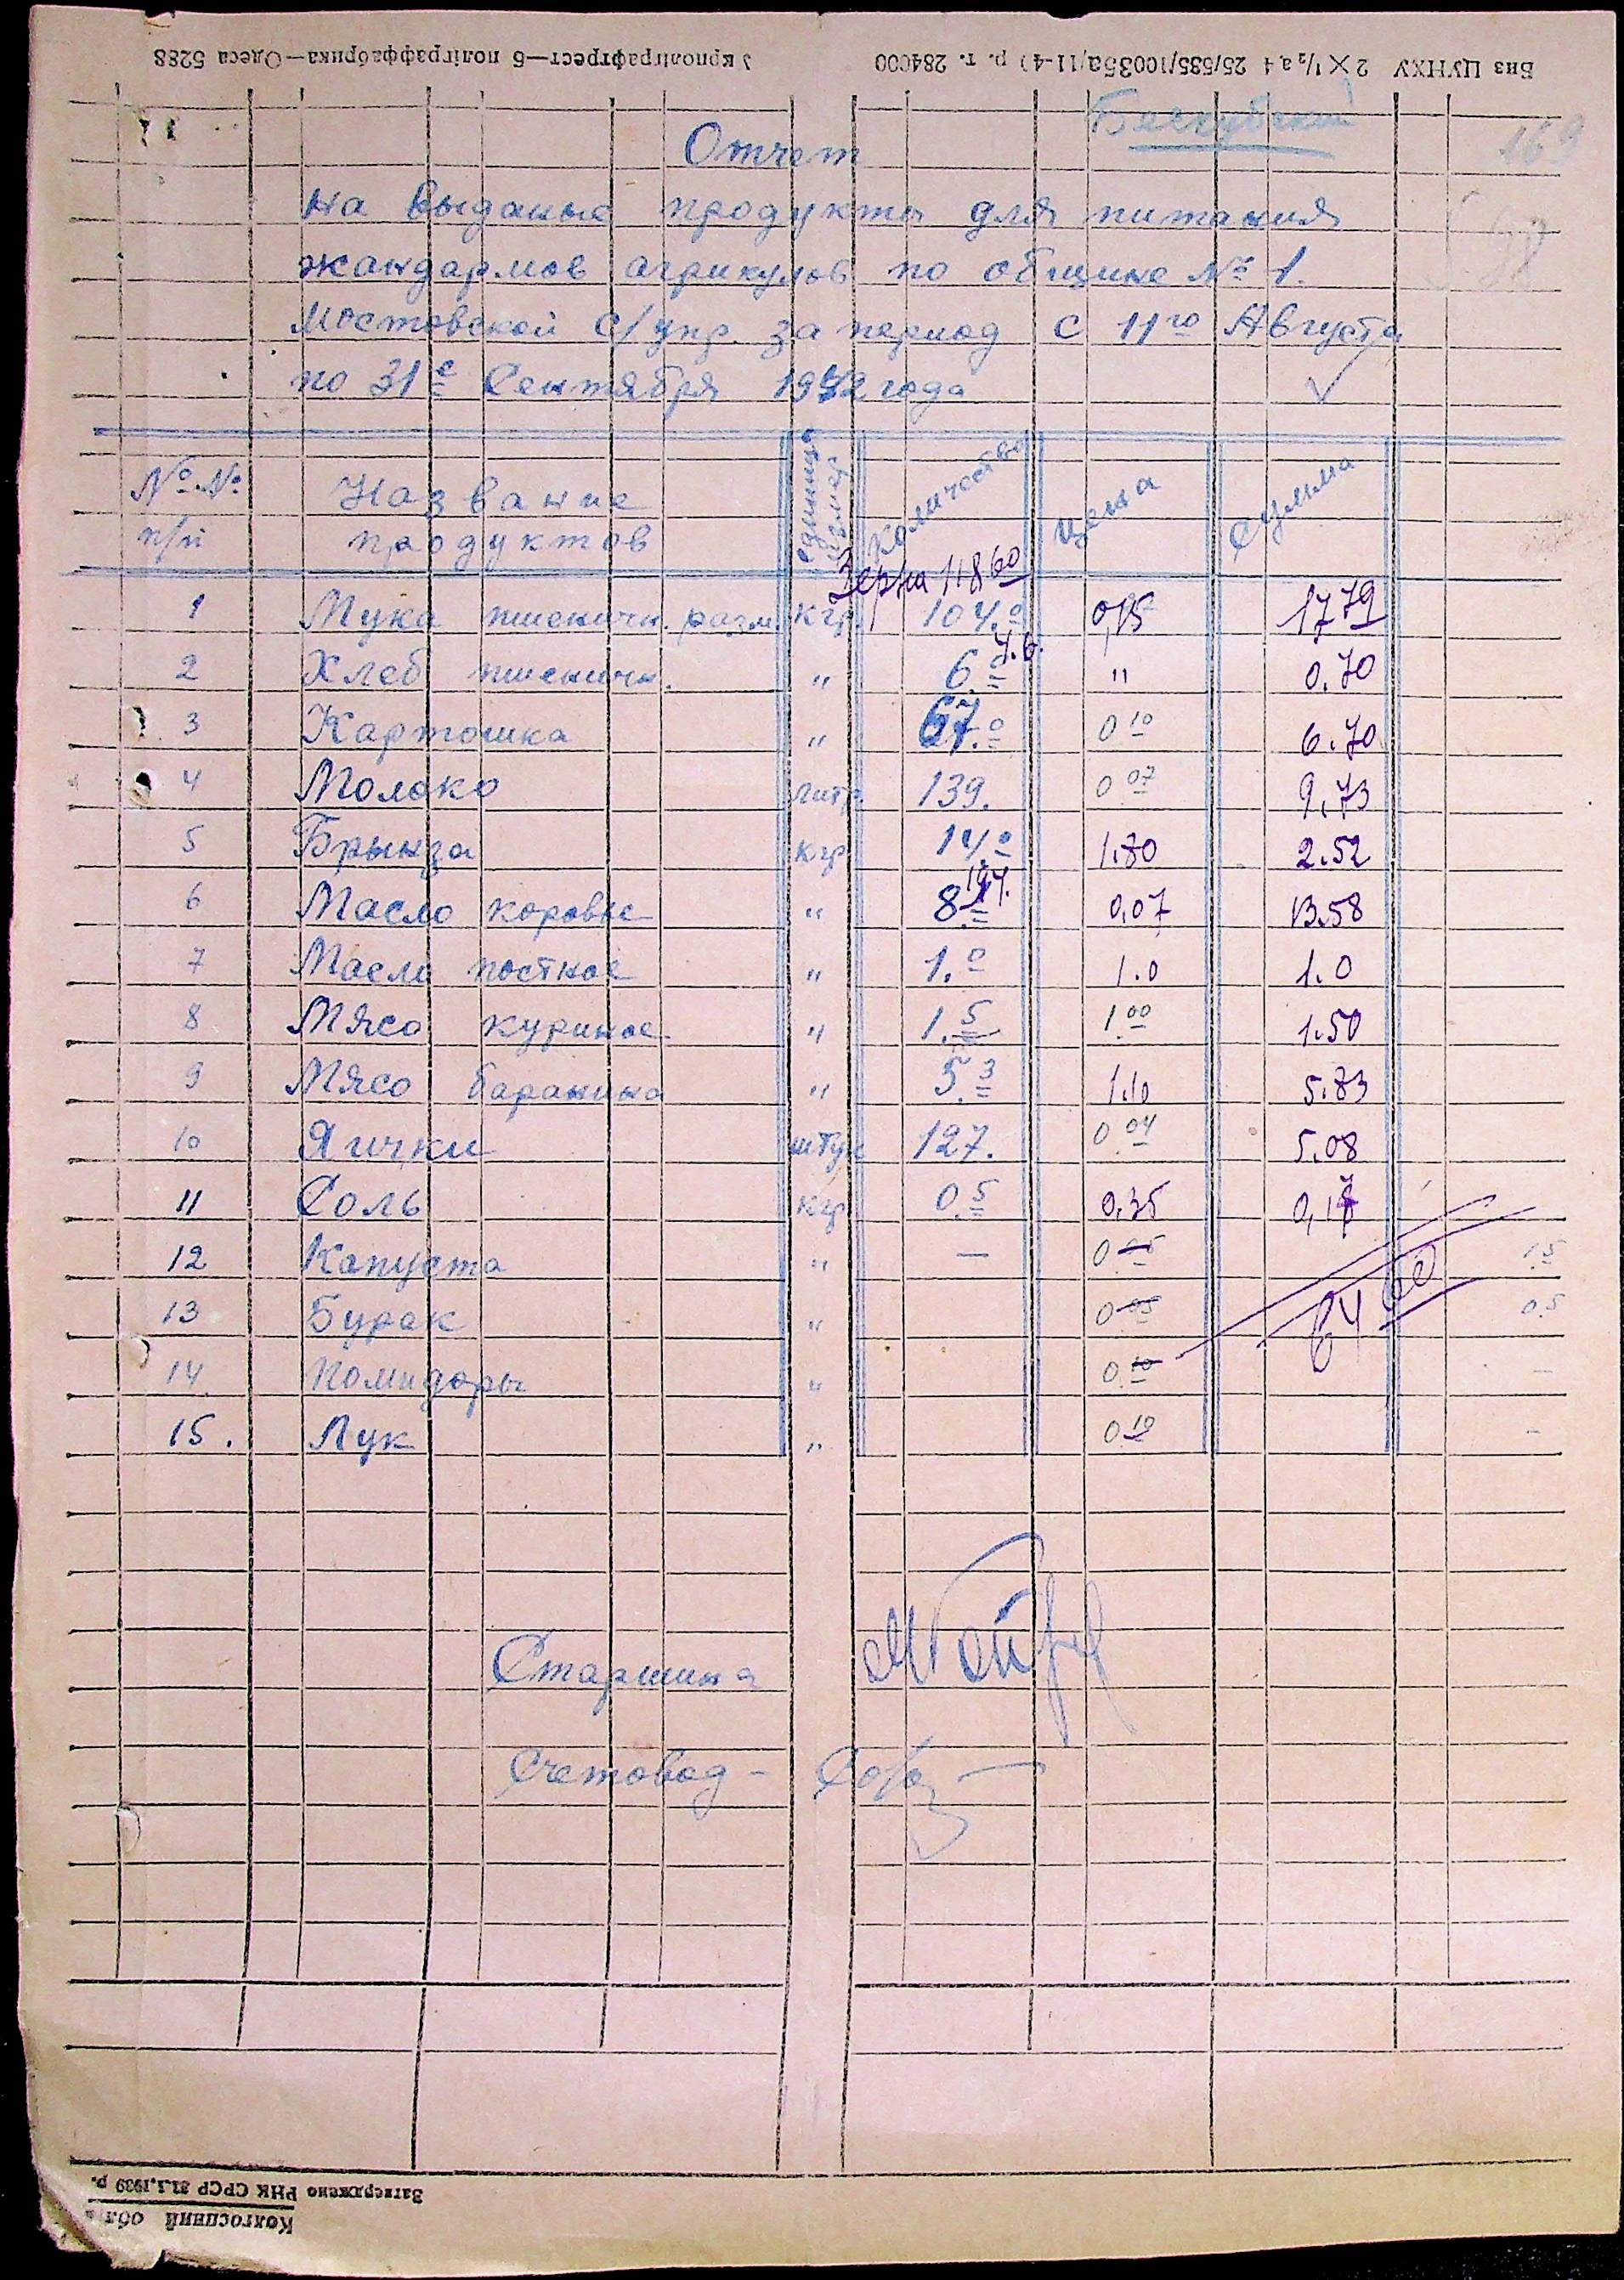 Укрполіграфтрест—6 поліграффабрика—Одеса 5288
Вид ЦУНХУ 2×1/2 а4 25/535/10035а/11-4) р. т. 284000
169
Отчет
На выданые продукты для питания
жандармов агрикулов по общине № 1.
Мостовской с/упр. за период с 11го Августа
по 31е Сентября 1942 года
№ № п/п Название продуктов единица Количество Цена Сумма
Зерна 118 60
1 Мука пшеничн. разм. кгр. 104.0 0,15 17 79
2 Хлеб пшеничн. " 6.= " 0.70
3 Картошка " 67.0 0 10 6.70
4 Молоко литр. 139. 0 07 9,73
5 Брынза кгр 14.0 1.80 2.52
6 Масло коровье " 8.= 194. 0,07 13.58
7 Масло постное " 1.0 1.0 1.0
8 Мясо куриное " 1.5 1 00 1.50
9 Мясо баранина " 5.3 1.10 5.83
10 Яички штук 127. 0 04 5.08
11 Соль кгр 0.5 0.35 0,17
12 Капуста " — 0 05 1.5
13 Бурак " 0 05 64 60 0.5
14 Помидоры " 0.10 —
15. Лук " 0 10 -
Старшина
Счетовод -
Затверджено РНК СРСР 31.1.1939 р.
Колгоспний обл